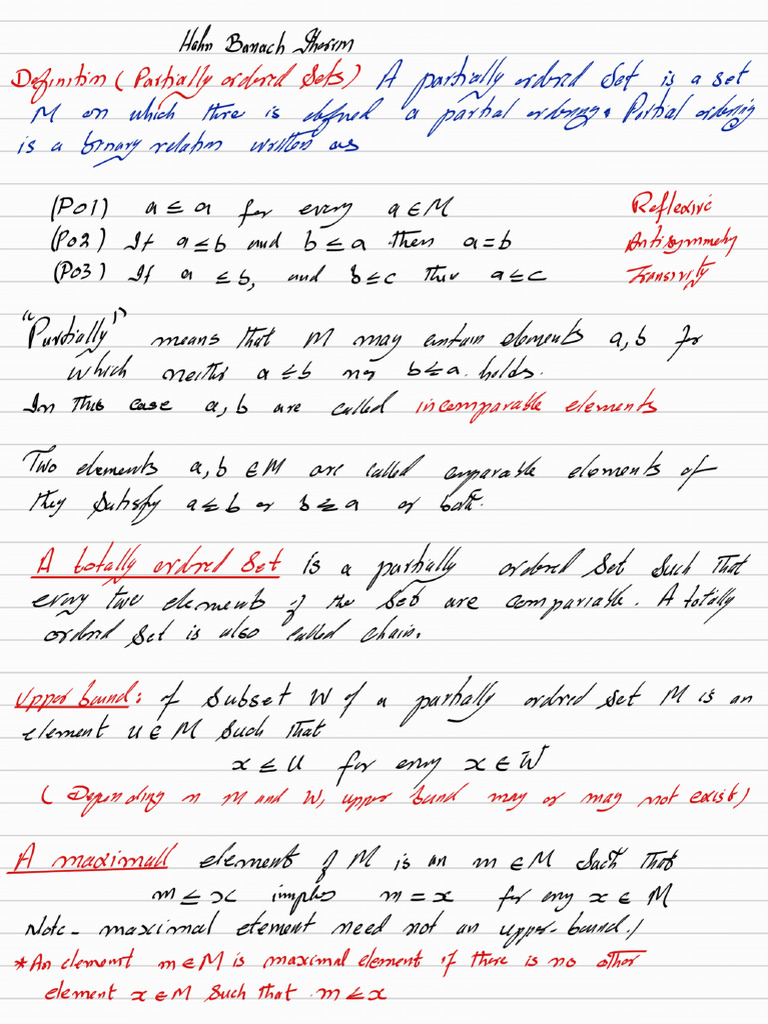 Hahn Banach Theorem
Definition (Partially ordered Sets) A partially ordered Set is a set
M on which there is defined a partial ordering. Partial ordering
is a binary relation written as
(PO1) a ≤ a for every a ∈ M Reflexive
(PO2) If a ≤ b and b ≤ a then a = b Antisymmetry
(PO3) If a ≤ b, and b ≤ c then a ≤ c Transivity
"Partially" means that M may contain elements a, b for
which neither a ≤ b nor b ≤ a. holds.
In this case a, b are called incomparable elements
Two elements a, b ∈ M are called comparable elements of
they satisfy a ≤ b or b ≤ a or both.
A totally ordered Set is a partially ordered Set Such that
every two elements of the Set are comparable. A totally
ordered Set is also called chain.
Upper bound: of Subset W of a partially ordered set M is an
element u ∈ M Such that
x ≤ u for every x ∈ W
(Depending on M and W, upper bound may or may not exist)
A maximall element of M is an m ∈ M Such that
m ≤ x implies m = x for any x ∈ M
Note - maximal element need not an upper-bound.
* An element m ∈ M is maximal element if there is no other
element x ∈ M Such that m ≤ x